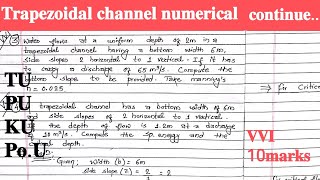 Trapezoidal channel numerical continue..
(3) Water flows at a uniform depth of 2m in a
trapezoidal channel having a bottom width 6m,
side slopes 2 horizontal to 1 vertical. If it has
to carry a discharge of 65 m³/s. Compute the
bottom slope to be provided. Take manning's
n = 0.025.
for Critical
TU
PU
KU
Po.U
trapezoidal channel has a bottom width of 6m
and side slopes of 2 horizontal to 1 vertical.
the depth of flow is 1.2m at a discharge
of 10 m³/s. Compute the sp. energy and the
depth.
Given; Width (b) = 6m
side slope (z) = 2/1 = 2
VVI
10marks